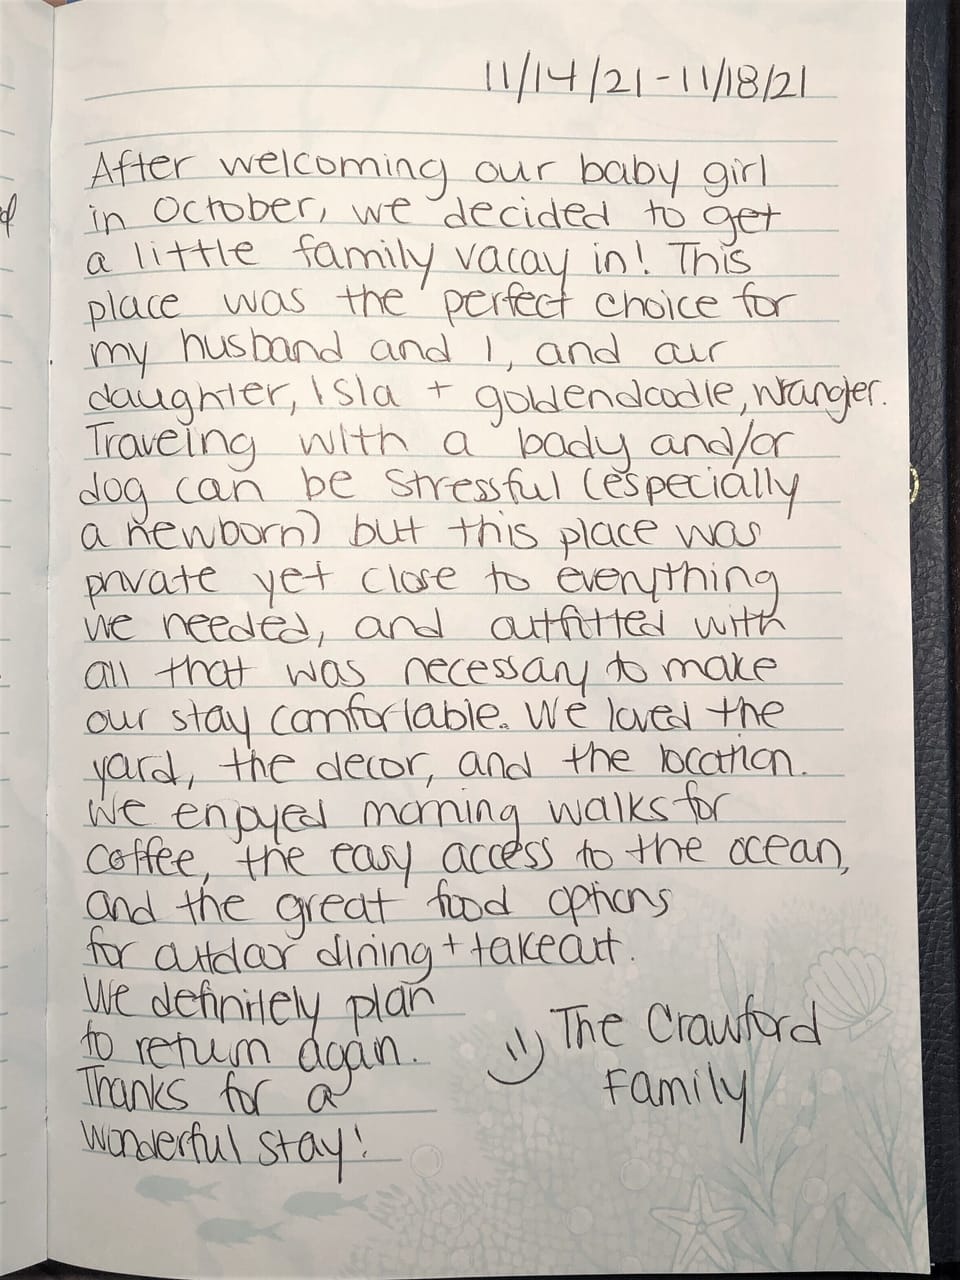 11/14/21-11/18/21
After welcoming our baby girl
in October, we decided to get
a little family vacay in! This
place was the perfect choice for
my husband and I, and our
daughter, Isla + goldendoodle, Wrangler.
Traveling with a baby and/or
dog can be stressful (especially
a newborn) but this place was
private yet close to everything
we needed, and outfitted with
all that was necessary to make
our stay comfortable. We loved the
yard, the decor, and the location.
We enjoyed morning walks for
coffee, the easy access to the ocean,
and the great food options
for outdoor dining + takeout.
We definitely plan
to return again.
Thanks for a
wonderful stay!
The Crawford
Family